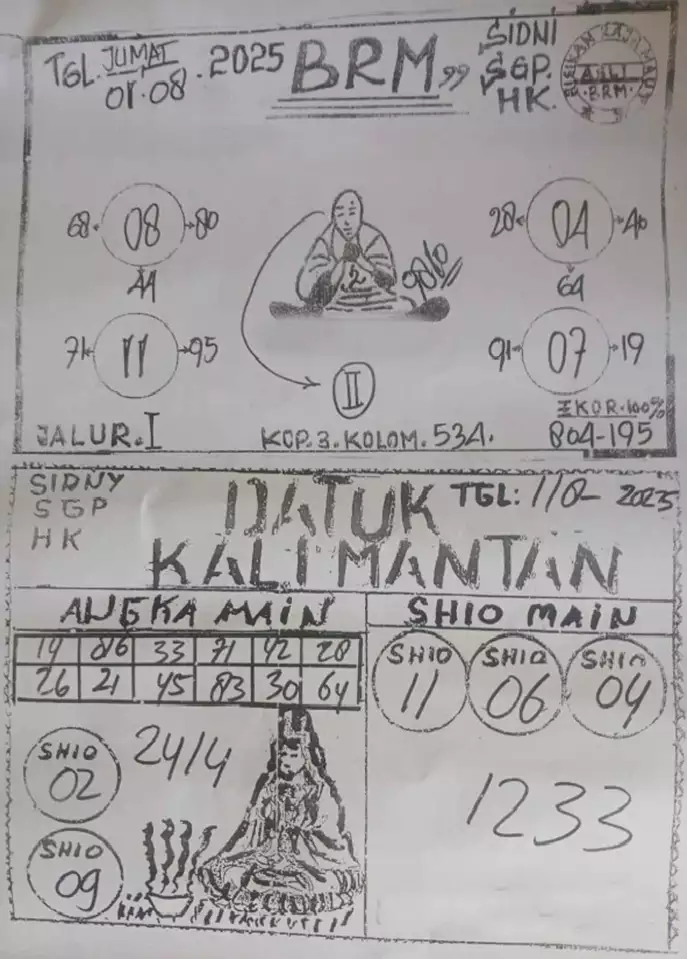 TGL. JUMAT 01.08.2025
BRM99
SIDNI
SGP.
HK.
ASLI
BRM
68 08 80
44
71 11 95
28 04 40
64
91 07 19
2
II
EKOR.100%
JALUR.I
KOP.3.KOLOM.534.
804-195
SIDNY
SGP
HK
DATUK
KALIMANTAN
TGL: 1/8- 2025
ANGKA MAIN
SHIO MAIN
33 71 42 28
26 21 45 83 30 64
SHIO 11
SHIO 06
SHIO 04
SHIO 02
2414
1233
SHIO 09